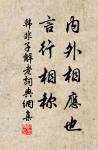 內外相應也
言行相稱
韓非子解老詞典網集